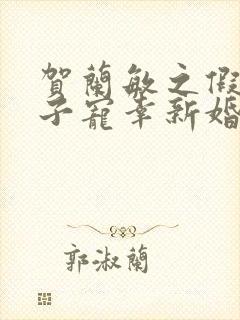 賀蘭敏之假
子寵幸新婚
郭淑蘭